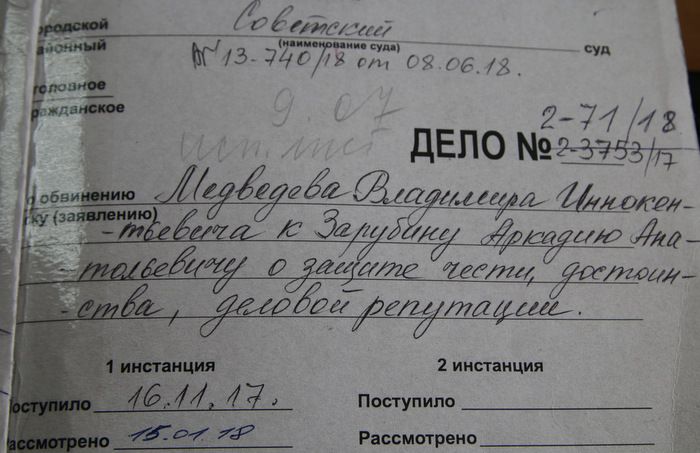 ородской Советский
айонный (наименование суда) суд
№ 13-740/18 от 08.06.18.
головное
ражданское
2-71/18
ДЕЛО № 2-3753/17
о обвинению Медведева Владимира Иннокен-
ку (заявлению)
-тьевича к Зарубину Аркадию Ана-
-тольевичу о защите чести, достоин-
-ства, деловой репутации.
1 инстанция 2 инстанция
оступило 16.11.17. Поступило
ассмотрено 15.01.18 Рассмотрено